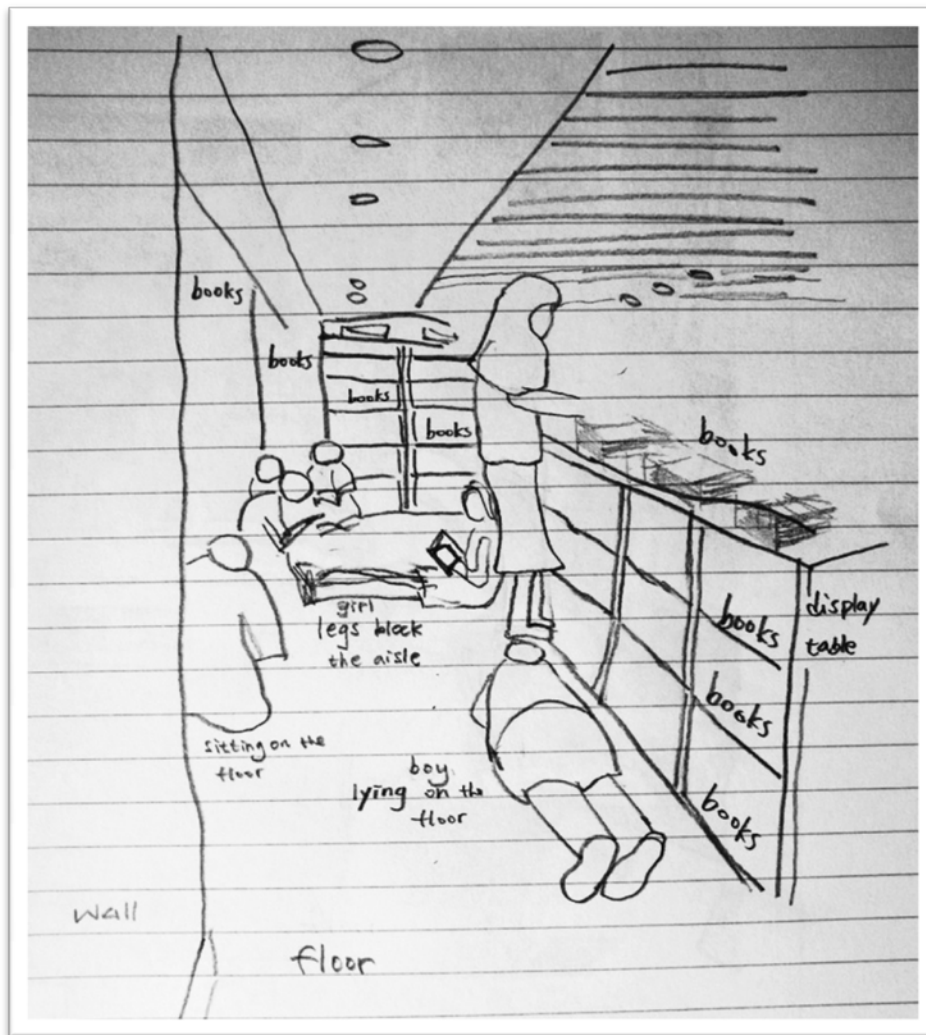 books
books
books
books
books
girl
legs block
the aisle
display
table
books
books
books
sitting on the
floor
boy
lying on the
floor
wall
floor